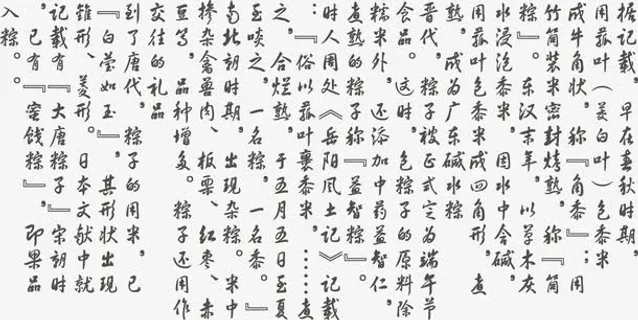 据记载，早在春秋时期，
用菰叶（茭白叶）包黍米
成牛角状，称『角黍』；用
竹筒装米密封烤熟，称『筒
粽』。东汉末年，以草木灰
水浸泡黍米，因水中含碱，
用菰叶包黍米成四角形，煮
熟，成为广东碱水粽
晋代，粽子被正式定为端午节
食品。这时，包粽子的原料除
糯米外，还添加中药益智仁，
煮熟的粽子称『益智粽』。
时人周处《岳阳风土记》记载
：『俗以菰叶裹黍米，……煮
之，合烂熟，于五月五日至夏
至啖之，一名粽，一名黍。』
南北朝时期，出现杂粽。米中
掺杂禽兽肉、板栗、红枣、赤
豆等，品种增多。粽子还用作
交往的礼品
到了唐代，粽子的用米，已
『白莹如玉』，其形状出现
锥形、菱形。日本文献中就
记载有『大唐粽子』。宋朝时
，已有『蜜饯粽』，即果品
入粽。